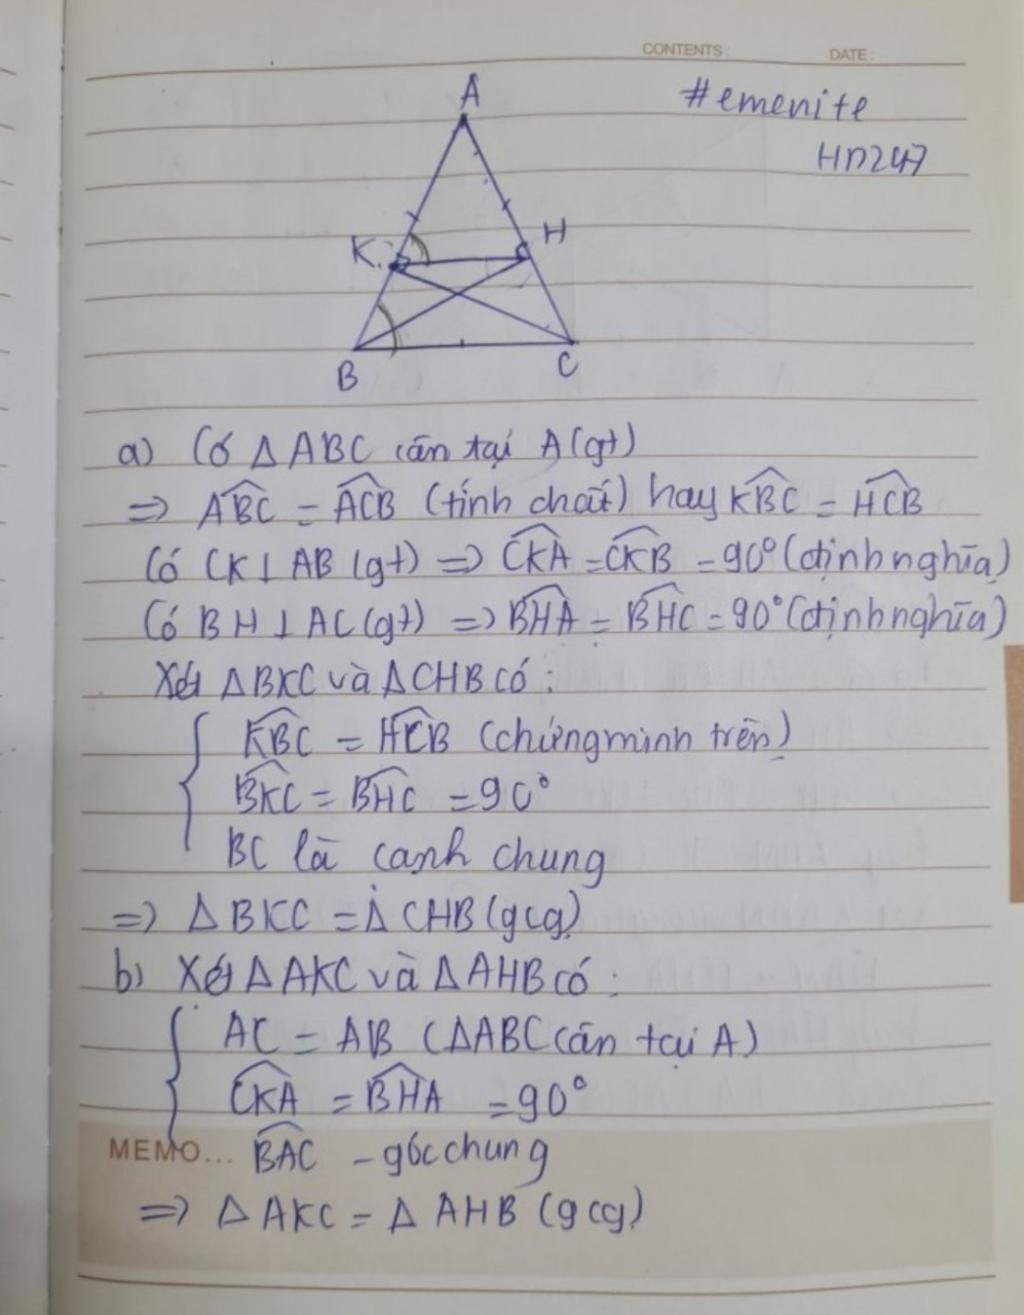 CONTENTS: DATE:
#emenite
HD247
A
K
H
B
C
a) Có Δ ABC cân tại A (gt)
=> \widehat{ABC} = \widehat{ACB} (tính chất) hay \widehat{KBC} = \widehat{HCB}
Có CK ⊥ AB (gt) => \widehat{CKA} = \widehat{CKB} = 90° (định nghĩa)
Có BH ⊥ AC (gt) => \widehat{BHA} = \widehat{BHC} = 90° (định nghĩa)
Xét ΔBKC và ΔCHB có:
\widehat{KBC} = \widehat{HCB} (chứng minh trên)
\widehat{BKC} = \widehat{BHC} = 90°
BC là cạnh chung
=> Δ BKC = Δ CHB (gcg)
b) Xét Δ AKC và Δ AHB có:
AC = AB (ΔABC cân tại A)
\widehat{CKA} = \widehat{BHA} = 90°
MEMO... \widehat{BAC} - góc chung
=> Δ AKC = Δ AHB (gcg)